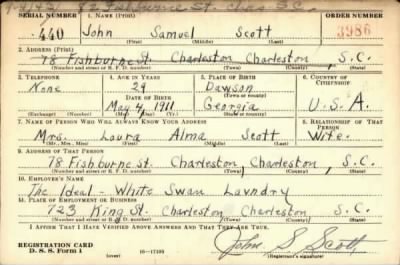 82 Fishburne St. Chas S.C.
SERIAL NUMBER 1. NAME (Print) ORDER NUMBER
440 John Samuel Scott 3986
(First) (Middle) (Last)
2. ADDRESS (Print)
78 Fishburne St. Charleston Charleston, S.C.
(Number and street or R. F. D. number) (Town) (County) (State)
3. TELEPHONE 4. AGE IN YEARS 5. PLACE OF BIRTH 6. COUNTRY OF CITIZENSHIP
None 29 Dawson
DATE OF BIRTH (Town or county)
May 4, 1911 Georgia U.S.A.
(Exchange) (Number) (Mo.) (Day) (Yr.) (State or country)
7. NAME OF PERSON WHO WILL ALWAYS KNOW YOUR ADDRESS 8. RELATIONSHIP OF THAT PERSON
Mrs. Loura Alma Scott Wife.
(Mr., Mrs., Miss) (First) (Middle) (Last)
9. ADDRESS OF THAT PERSON
78 Fishburne St. Charleston Charleston, S.C.
(Number and street or R. F. D. number) (Town) (County) (State)
10. EMPLOYER'S NAME
The Ideal - White Swan Laundry
11. PLACE OF EMPLOYMENT OR BUSINESS
723 King St. Charleston Charleston S.C.
(Number and street or R. F. D. number) (Town) (County) (State)
I AFFIRM THAT I HAVE VERIFIED ABOVE ANSWERS AND THAT THEY ARE TRUE.
REGISTRATION CARD
D. S. S. Form 1 (over) 16-17105 John S. Scott
(Registrant's signature)